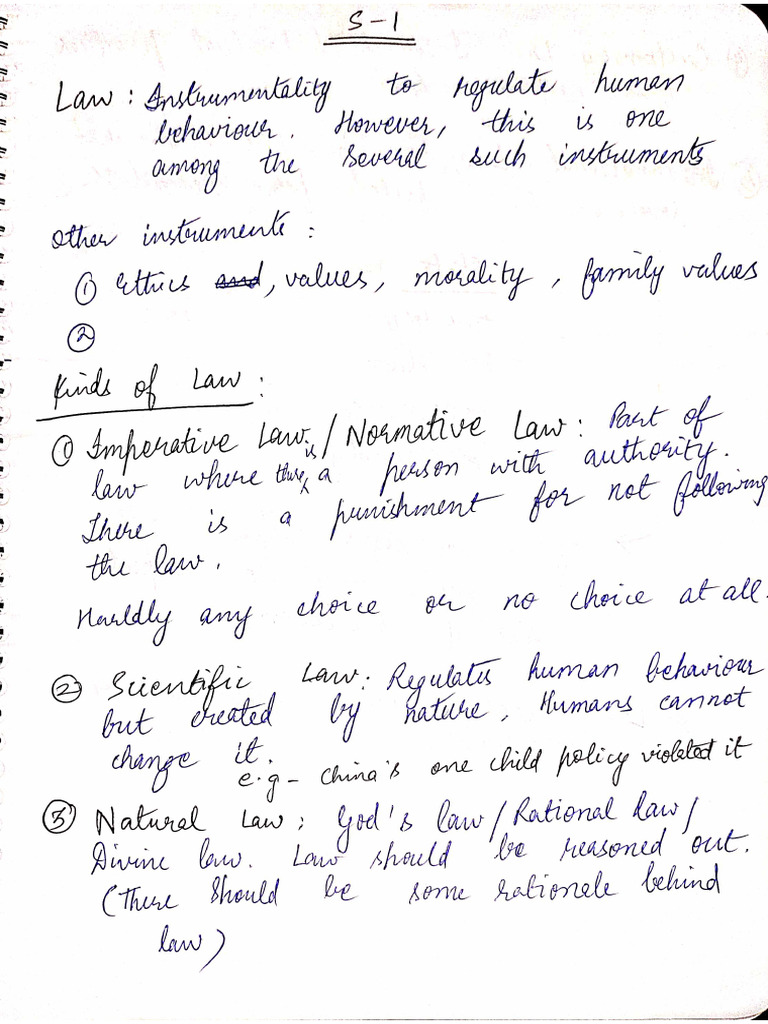 S-1
Law: Instrumentality to regulate human
behaviour. However, this is one
among the several such instruments
Other instruments:
① Ethics and, values, morality, family values
②
Kinds of Law:
① Imperative Law / Normative Law: Part of
law where there is a person with authority.
There is a punishment for not following
the law.
Harldly any choice or no choice at all.
② Scientific Law: Regulates human behaviour
but created by nature, Humans cannot
change it.
e.g - China's one child policy violated it
③ Natural Law: God's law/Rational Law/
Divine law. Law should be reasoned out.
(There should be some rationale behind
law)